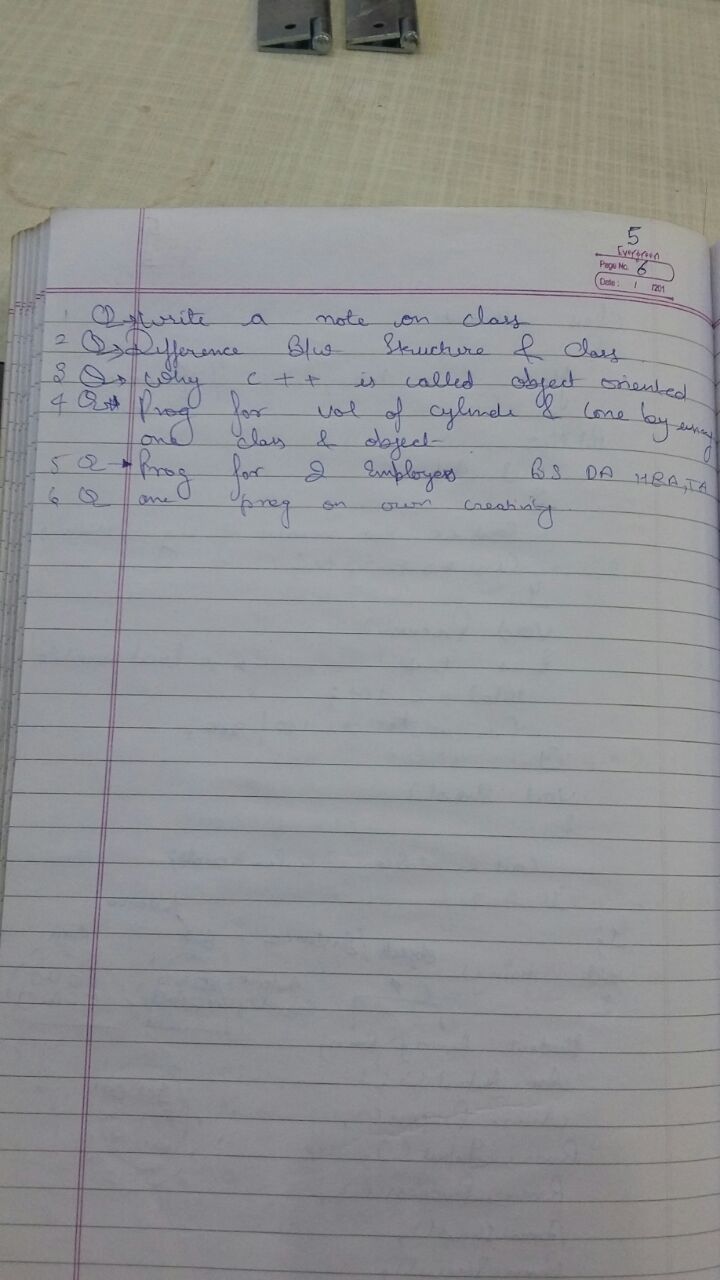 5
Evergreen
Page No. 6
Date : / /201
1 Q→ write a note on class
2 Q→ Difference B/w Structure & Class
3 Q→ Why C++ is called object oriented
4 Q→ Prog for vol of cylinde & Cone by
one class & object
5 Q→ Prog for 2 Employes BS DA HRA, TA
6 Q one prog on own